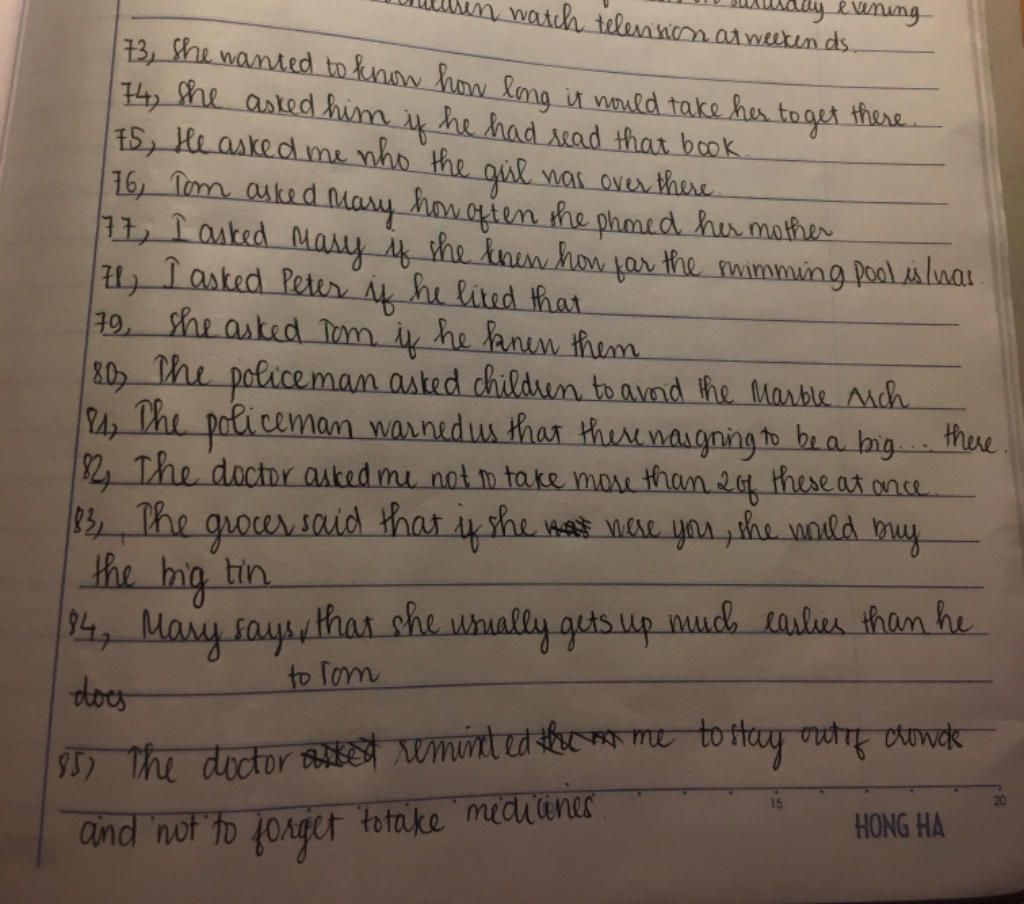 saturday evening
children watch television at weekends.
73, She wanted to know how long it would take her to get there.
74, She asked him if he had read that book.
75, He asked me who the girl was over there.
76, Tom asked Mary how often she phoned her mother
77, I asked Mary if she knew how far the swimming pool is/was.
78, I asked Peter if he liked that
79, She asked Tom if he knew them
80, The policeman asked children to avoid the Marble Arch
81, The policeman warned us that there was going to be a big.... there.
82, The doctor asked me not to take more than 2 of these at once.
83, The grocer said that if she was were you, she would buy
the big tin
84, Mary says, that she usually gets up much earlier than he
to Tom
does
85) The doctor asked reminded them me to stay out of crowds
and not to forget to take medicines.
15
20
HONG HA